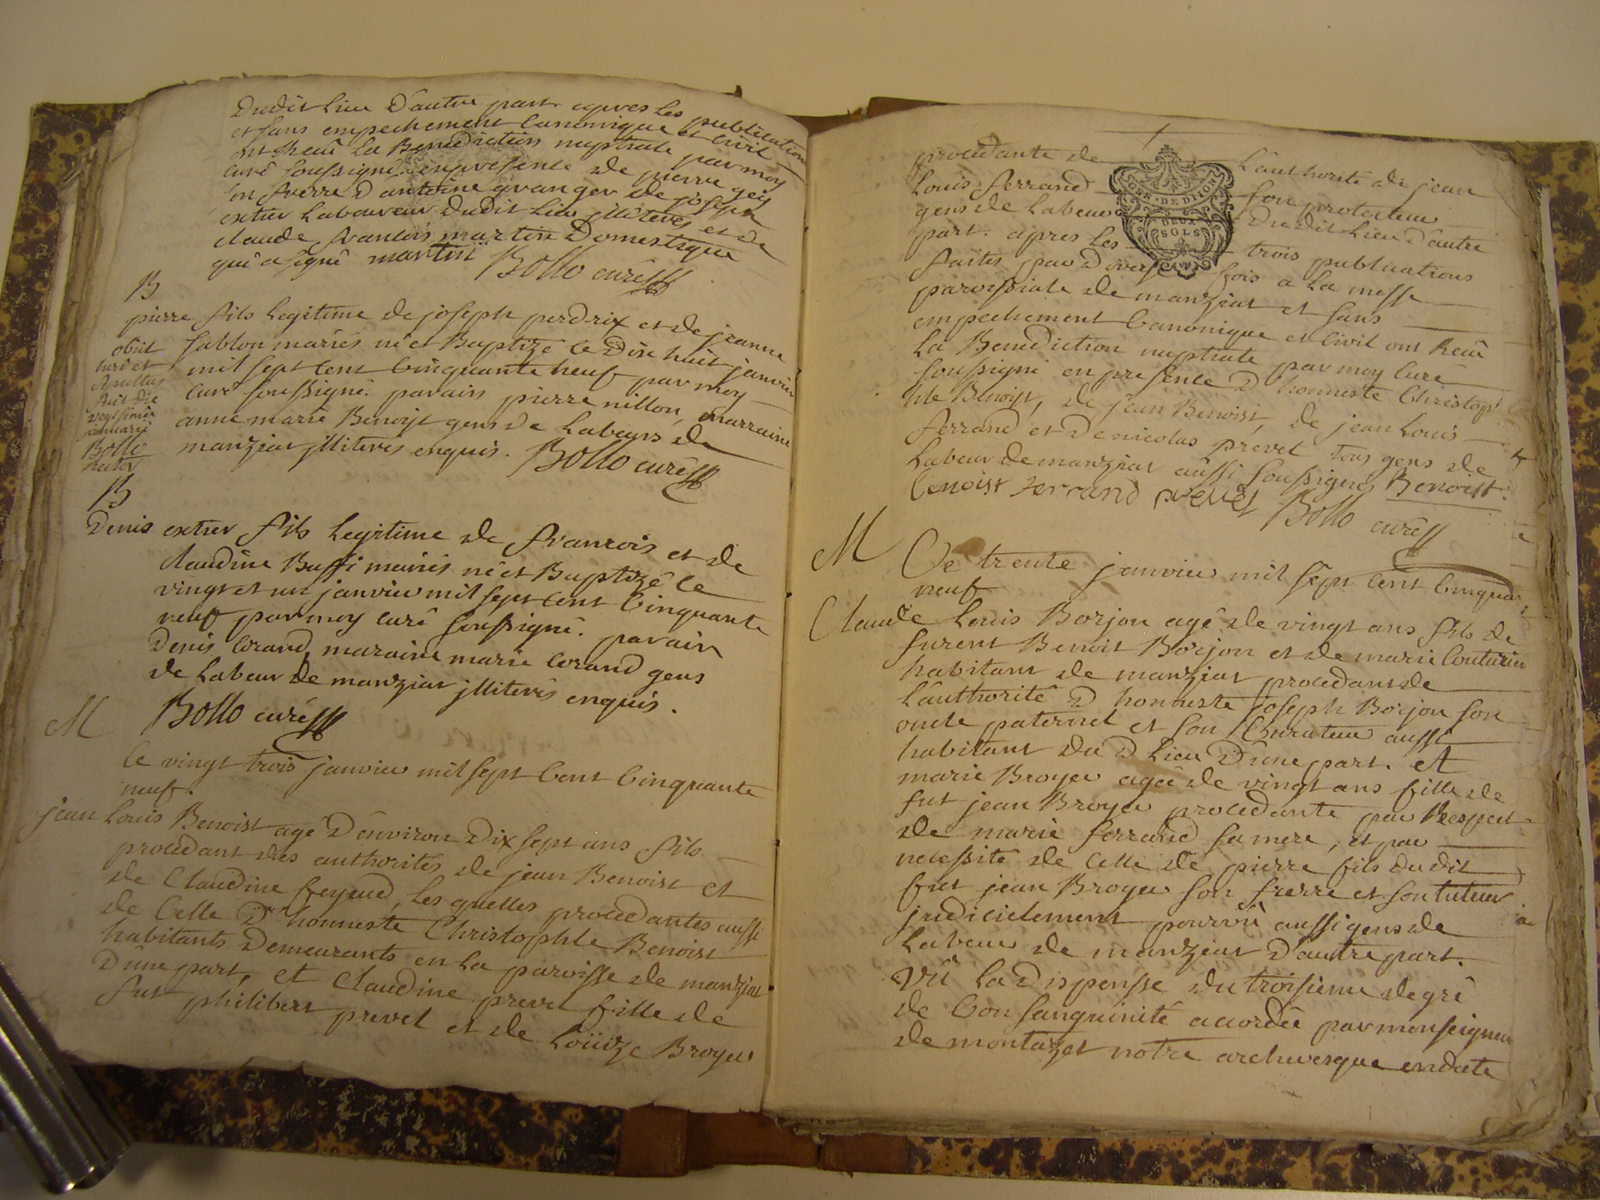 dudit lieu d'autre part apres les publications
et sans empechement canonique et civil
ont Receu La Benediction nuptiale par moy
curé soussigné en presence de pierre gey
son frerre d'antoine granger de joseph
extier Laboureur dudit Lieu illiterés et de
claude francois martin Domestique
qui a signé martin Bollo curé
B
pierre fils Legitime de joseph perdrix et de jeanne
sablon mariés né et Baptizé le Dix huit janvier
mil sept cent Cinquante neuf par moy
curé soussigné. parain pierre nillon, marraine
anne marie Benoist gens de Labeurs de
manziat illiterés enquis. Bollo curé
obiit
et
sepultus
est die
vigesima
januarii
Bollo
rector
B
Denis extier fils Legitime de francois et de
claudine Buffi mariés né et Baptizé Le
vingt et un janvier mil sept cent Cinquante
neuf par moy curé soussigné. parain
Denis Corand, maraine marie Corand gens
de Labeur de manziat jlliterés enquis.
Bollo curé
M
Ce vingt trois janvier mil sept Cent Cinquante
neuf.
jean Louis Benoist agé d'environ dix sept ans fils
procedant des authorités, de jean Benoist et
de Claudine feyeud, Les quelles procedantes aussi
de Celle d'honneste Christophle Benoist
habitants Demeurants en La paroisse de manziat
D'une part, et Claudine prevel fille de
fut philibert prevel et de Loüize Broyer
procedante de L'authorité de jean
Louis ferrand son protecteur
gens de Labeur dudit Lieu d'autre
part. apres Les trois publications
faites par diverses fois a La messe
paroissiale de manziat et sans
empechement Canonique et Civil ont Receu
La Benediction nuptiale par moy Curé
soussigné en presence d'honneste Christop
hle Benoist, de jean Benoist, de jean Louis
ferrand et de nicolas prevel tous gens de
Labeur de manziat aussi soussignés Benoist
Benoist ferrand prevel Bollo curé
GEN. DE DIJON
DEUX
SOLS
M
Ce trente janvier mil sept Cent Cinquante
neuf
Claude Louis Borjon agé de vingt ans fils de
furent Benoit Borjon et de marie Couturier
habitant de manziat procedant de
L'authorité d'honneste joseph Borjon son
oncle paternel et son Curateur aussi
habitant du d Lieu D'une part. et
marie Broyer agée de vingt ans fille de
fut jean Broyer procedante par Respect
de marie ferrand sa mere, et par
necessité de Celle de pierre fils dudit
fut jean Broyer son frerre et son tuteur
judicielement pourvû aussi gens de
Labeur de manziat d'autre part.
Vû La Dispensse du troisieme degré
de Consanguinité accordée par monseigneur
de montazet notre archevesque en date